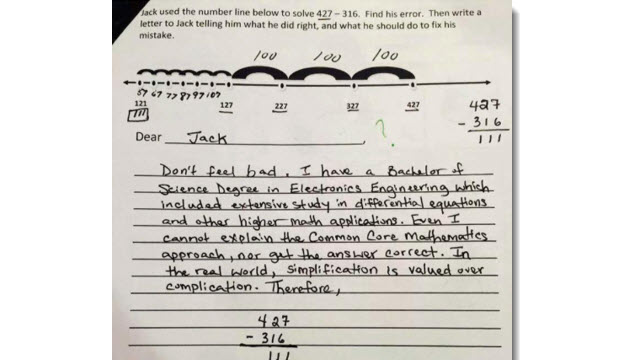 Jack used the number line below to solve 427 – 316. Find his error. Then write a
letter to Jack telling him what he did right, and what he should do to fix his
mistake.
100 100 100
57 67 77 87 97 107
121 127 227 327 427
111
427
- 316
111
Dear Jack ,
?
Don't feel bad. I have a Bachelor of
Science Degree in Electronics Engineering which
included extensive study in differential equations
and other higher math applications. Even I
cannot explain the Common Core Mathematics
approach, nor get the answer correct. In
the real world, simplification is valued over
complication. Therefore,
427
- 316
111